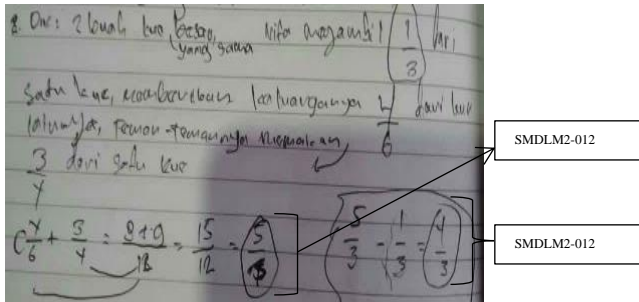 8. Dik: 2 buah kue besar, yang sama kita mengambil 1/3 dari
satu kue, memberikan keluarganya 4/6 dari kue
lainnya, teman-temannya memakan
3/4 dari satu kue
4/6 + 3/4 = 8+9/12 = 15/12 = 5/3
5/3 - 1/3 = 4/3
SMDLM2-012
SMDLM2-012